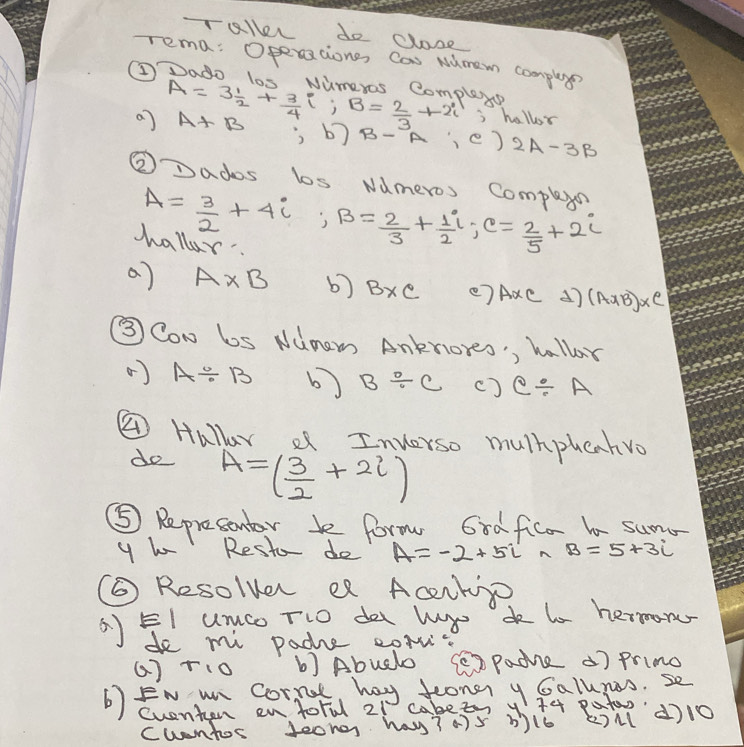 Taller de Clase
Tema: Operaciones Con Números complejos
① Dado los Números Complejos
A = 3 1/2 + 3/4 i ; B = 2/3 + 2i ; hallar
a) A + B ; b) B - A ; c) 2A - 3B
② Dados los Números Complejos
A = 3/2 + 4i ; B = 2/3 + 1/2 i ; C = 2/5 + 2i
hallar:
a) A x B b) B x C c) A x C d) (A x B) x C
③ Con los Números Anteriores; hallar
a) A ÷ B b) B ÷ C c) C ÷ A
④ Hallar el Inverso multiplicativo
de A = (3/2 + 2i)
⑤ Representar de forma Gráfica la suma
y la Resta de A = -2 + 5i ∧ B = 5 + 3i
⑥ Resolver el Acertijo
a) El unico Tio del hijo de la hermana
de mi padre es mi:
a) Tio b) Abuelo c) padre d) Primo
b) EN un Corral hay leones y Gallinas. Se
cuentan en total 21 cabezas y 74 patas.
Cuantos leones hay? a) 5 b) 16 c) 11 d) 10